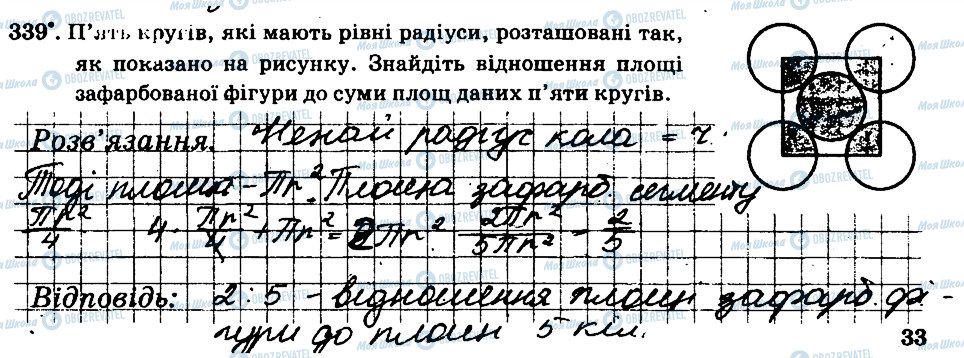 339°. П'ять кругів, які мають рівні радіуси, розташовані так,
як показано на рисунку. Знайдіть відношення площі
зафарбованої фігури до суми площ даних п'яти кругів.
Розв'язання. Нехай радіус кола = r.
Тоді площа - Πr². Площа зафарб. сегменту
Πr²/4 4·Πr²/4 + Πr² = 2Πr² 2Πr²/5Πr² = 2/5
Відповідь: 2:5 - відношення площ зафарб. фі-
гури до площ 5 кіл.
33